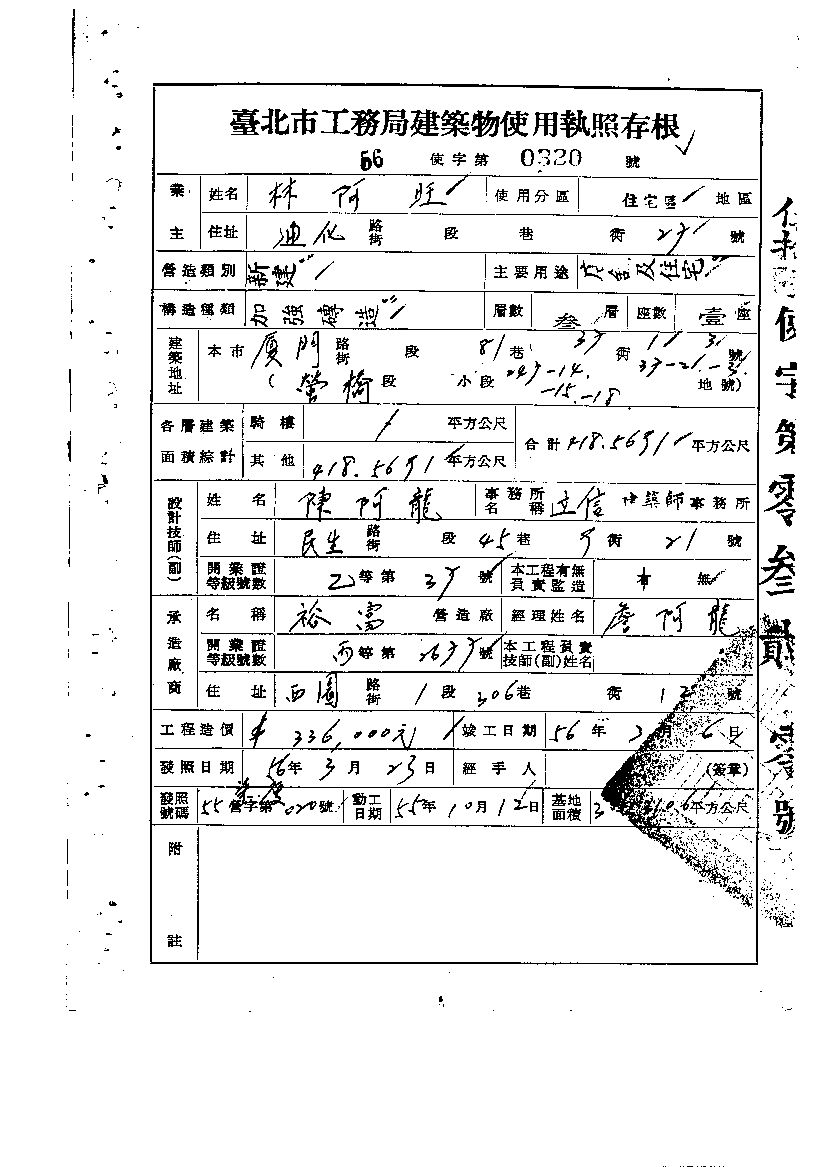 臺北市工務局建築物使用執照存根
56 使字第 0320 號
業主 姓名 林阿旺 使用分區 住宅區 地區
住址 迪化路街 段 巷 衖 號
營造類別 新建 主要用途 店舍及住宅
構造種類 加強磚造 層數 叁層 座數 壹座
建築地址 本市 厦門路街 段 81巷 衖 號
(螢橋段 小段 地號)
各層建築面積綜計 騎樓 平方公尺 合計 平方公尺
其他 平方公尺
設計技師(副) 姓名 陳阿龍 事務所名稱 立信建築師事務所
住址 民生路街 段 45巷 衖 21號
開業證等級號數 乙等第 號 本工程有無負責監造 有 無
承造廠商 名稱 裕富 營造廠 經理姓名 詹阿龍
開業證等級號數 丙等第 號 本工程負責技師(副)姓名
住址 西園路街 1段 306巷 衖 號
工程造價 336,000元 竣工日期 56年 月 6日
發照日期 56年3月23日 經手人 (簽章)
發照號碼 55營字第 號 動工日期 55年10月12日 基地面積 平方公尺
附註
使字第零叁貳零號